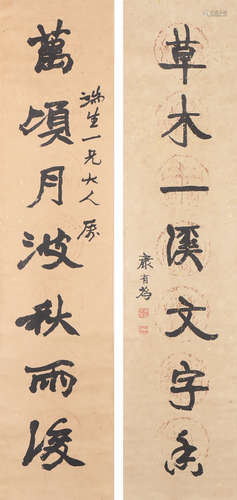 草木一溪文字香
康有為
萬頃月波秋雨後
瑞生一兄大人屬